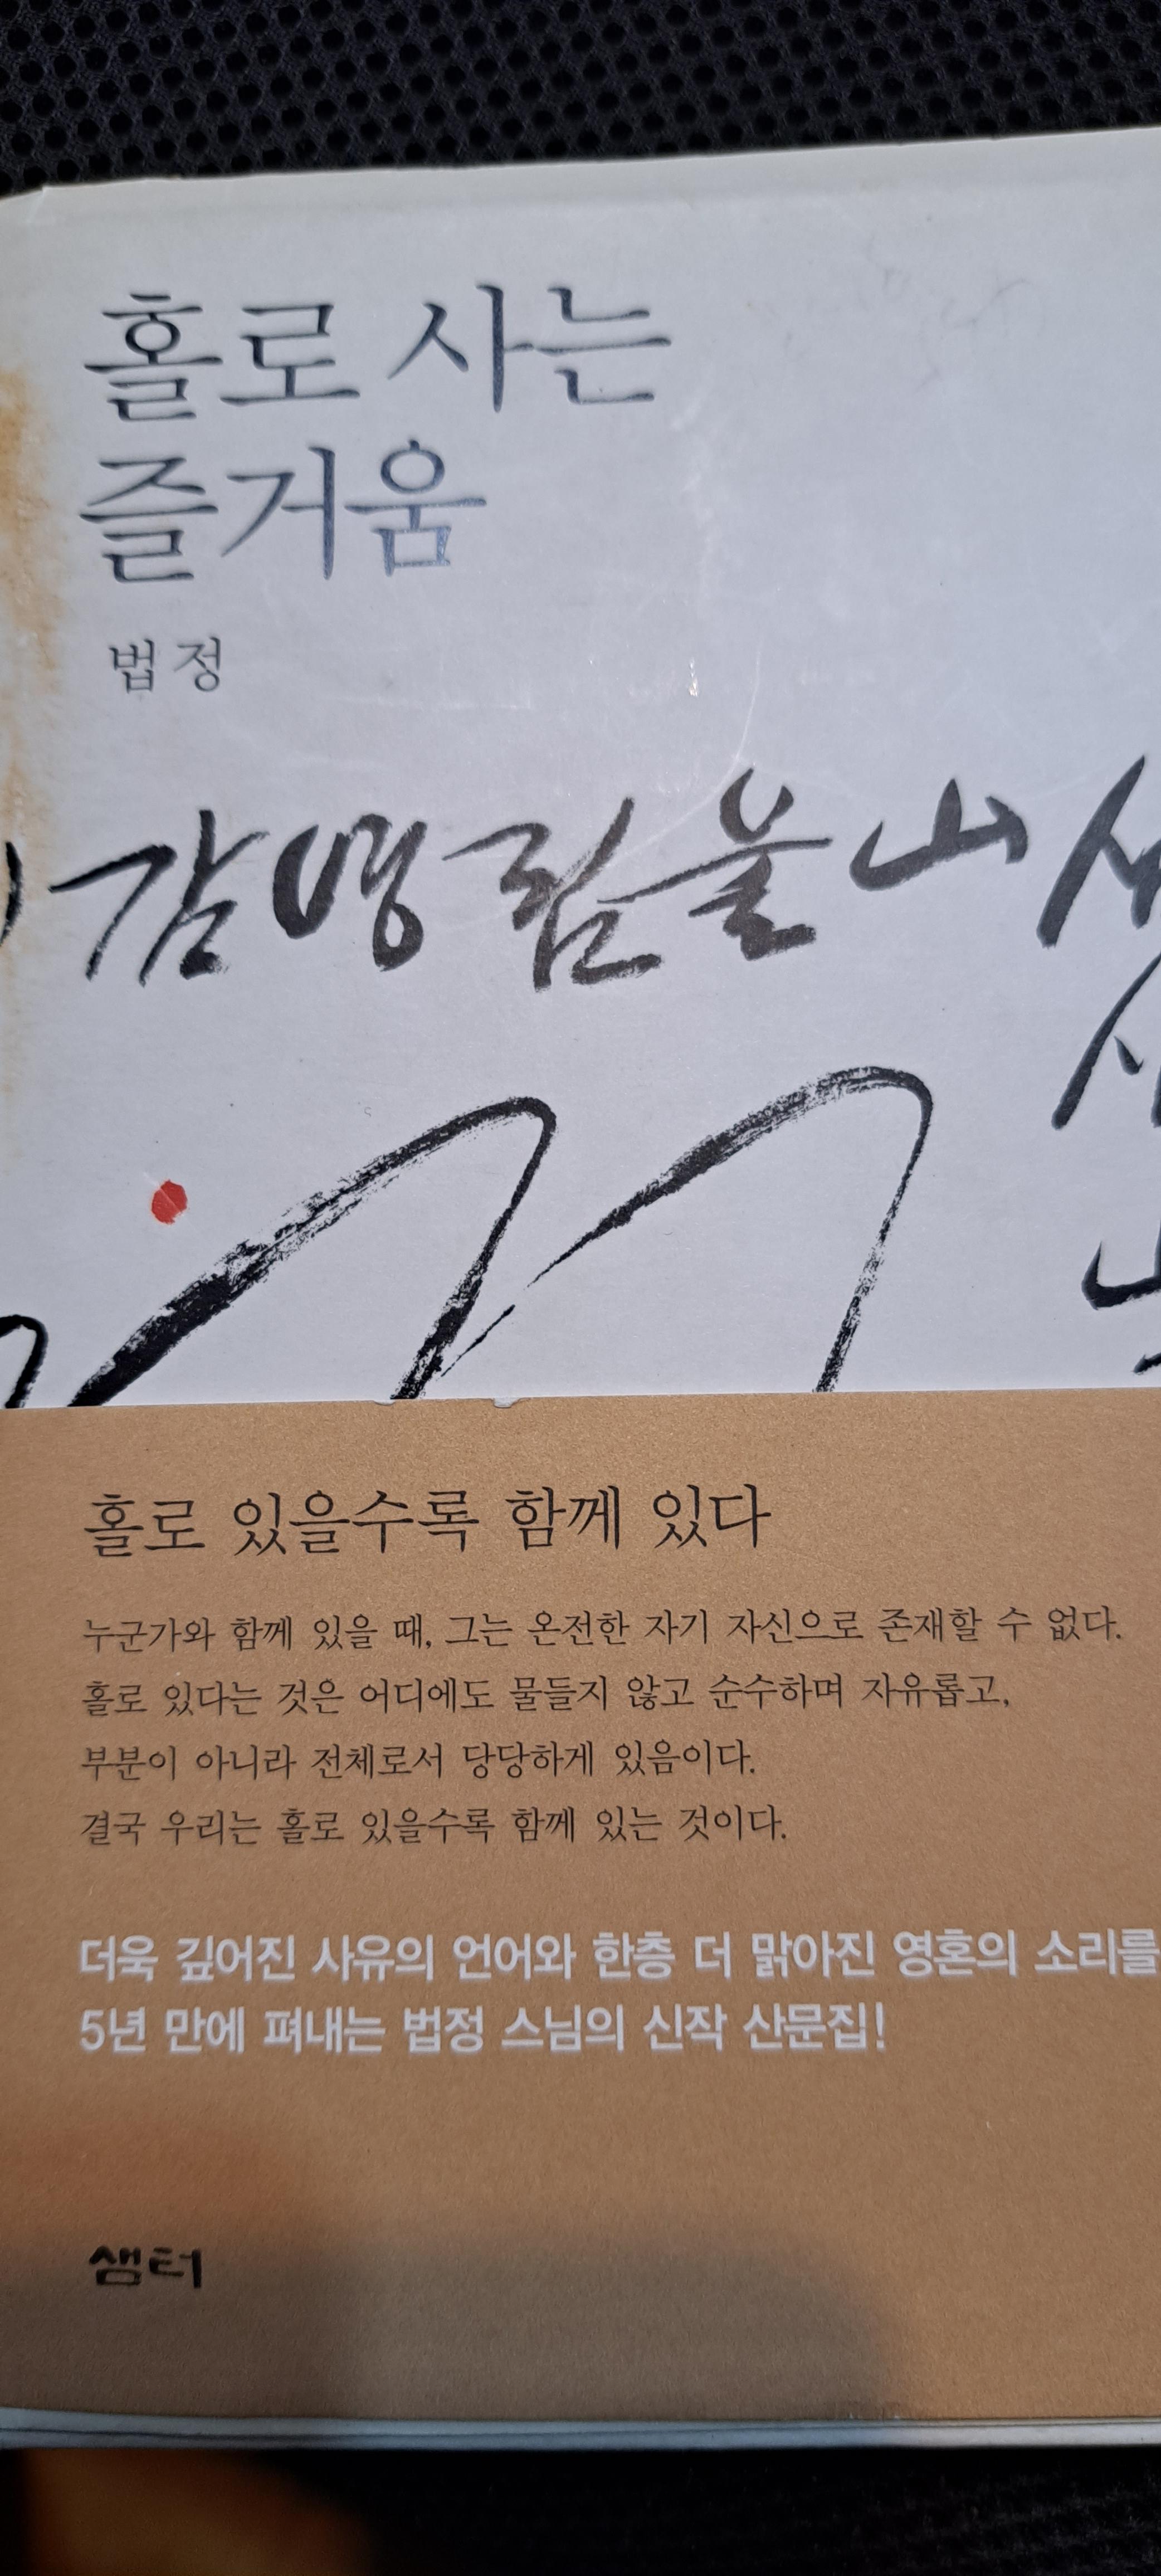 홀로 사는
즐거움
법정
홀로 있을수록 함께 있다
누군가와 함께 있을 때, 그는 온전한 자기 자신으로 존재할 수 없다.
홀로 있다는 것은 어디에도 물들지 않고 순수하며 자유롭고,
부분이 아니라 전체로서 당당하게 있음이다.
결국 우리는 홀로 있을수록 함께 있는 것이다.
더욱 깊어진 사유의 언어와 한층 더 맑아진 영혼의 소리를
5년 만에 펴내는 법정 스님의 신작 산문집!
샘터